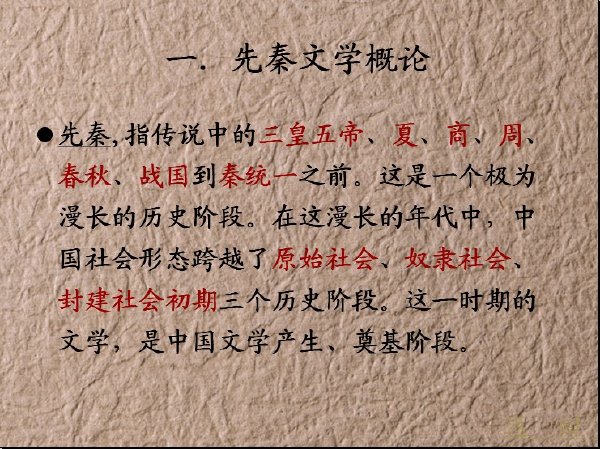 一．先秦文学概论
●先秦,指传说中的三皇五帝、夏、商、周、
春秋、战国到秦统一之前。这是一个极为
漫长的历史阶段。在这漫长的年代中，中
国社会形态跨越了原始社会、奴隶社会、
封建社会初期三个历史阶段。这一时期的
文学，是中国文学产生、奠基阶段。